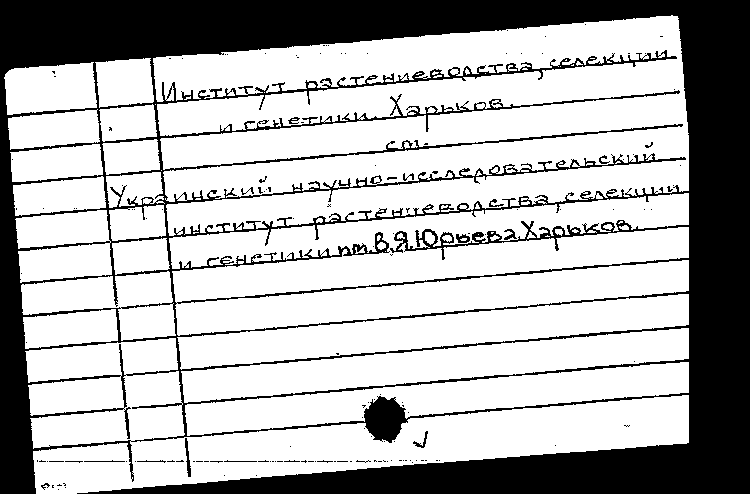 Институт растениеводства, селекции
и генетики. Харьков.
см.
Украинский научно-исследовательский
институт растениеводства, селекции
и генетики им. В.Я.Юрьева Харьков.